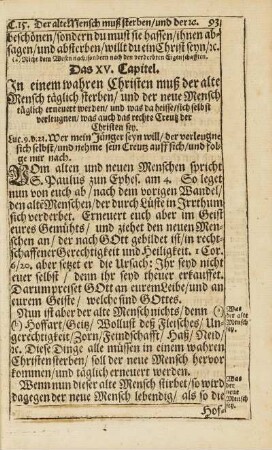 C.15. Der alte Mensch muß sterben/ und der ꝛc. 93
beschönen/ sondern du must sie hassen/ ihnen ab-
sagen/ und absterben/ willt du ein Christ seyn/ ꝛc.
(a) Nicht dem Wesen nach/ sondern nach den verderbten Eigenschafften.
Das XV. Capitel.
In einem wahren Christen muß der alte
Mensch täglich sterben/ und der neue Mensch
täglich erneuert werden/ und was da heisse/ sich selbst
verleugnen/ was auch das rechte Creutz der
Christen sey.
Luc. 9. v. 23. Wer mein Jünger seyn will/ der verleugne
sich selbst/ und nehme sein Creutz auff sich/ und fol-
ge mir nach.
VOm alten und neuen Menschen spricht
S. Paulus zun Ephes. am 4. So leget
nun von euch ab/ nach dem vorigen Wandel/
den alte Menschen/ der durch Lüste in Irrthum
sich verderbet. Erneuert euch aber im Geist
eures Gemühts/ und ziehet den neuen Men-
schen an/ der nach GOtt gebildet ist/ in recht-
schaffener Gerechtigkeit und Heiligkeit. 1 Cor.
6/20. aber setzet er die Ursach: Ihr seyd nicht
euer selbst/ denn ihr seyd theuer erkauffet.
Darum preiset GOtt an eurem Leibe/ und an
eurem Geiste/ welche sind GOttes.
Nun ist aber der alte Mensch nichts/ denn (a)
(b) Hoffart/ Geitz/ Wollust deß Fleisches/ Un-
gerechtigkeit/ Zorn/ Feindschafft/ Haß/ Neid/
ꝛc. Diese Dinge alle müssen in einem wahren
Christen sterben/ soll der neue Mensch hervor
kommen/ und täglich erneuert werden.
Was
der alte
Mensch
sey.
Wenn nun dieser alte Mensch stirbet/ so wird
dagegen der neue Mensch lebendig/ als so die
Was
der
neue
Mensch
sey.
Hof-